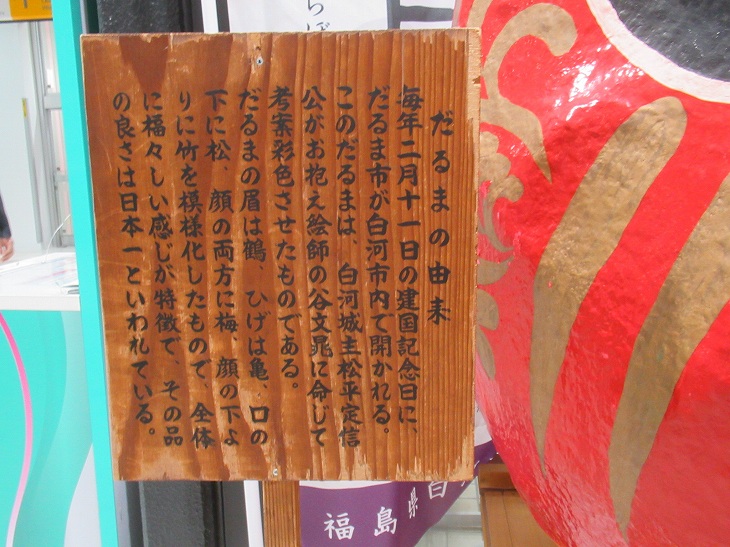 だるまの由来
毎年二月十一日の建国記念日に、
だるま市が白河市内で開かれる。
このだるまは、白河城主松平定信
公がお抱え絵師の谷文晁に命じて
考案彩色させたものである。
だるまの眉は鶴、ひげは亀、口の
下に松、顔の両方に梅、顔の下よ
りに竹を模様化したもので、全体
に福々しい感じが特徴で、その品
の良さは日本一といわれている。
福島県白